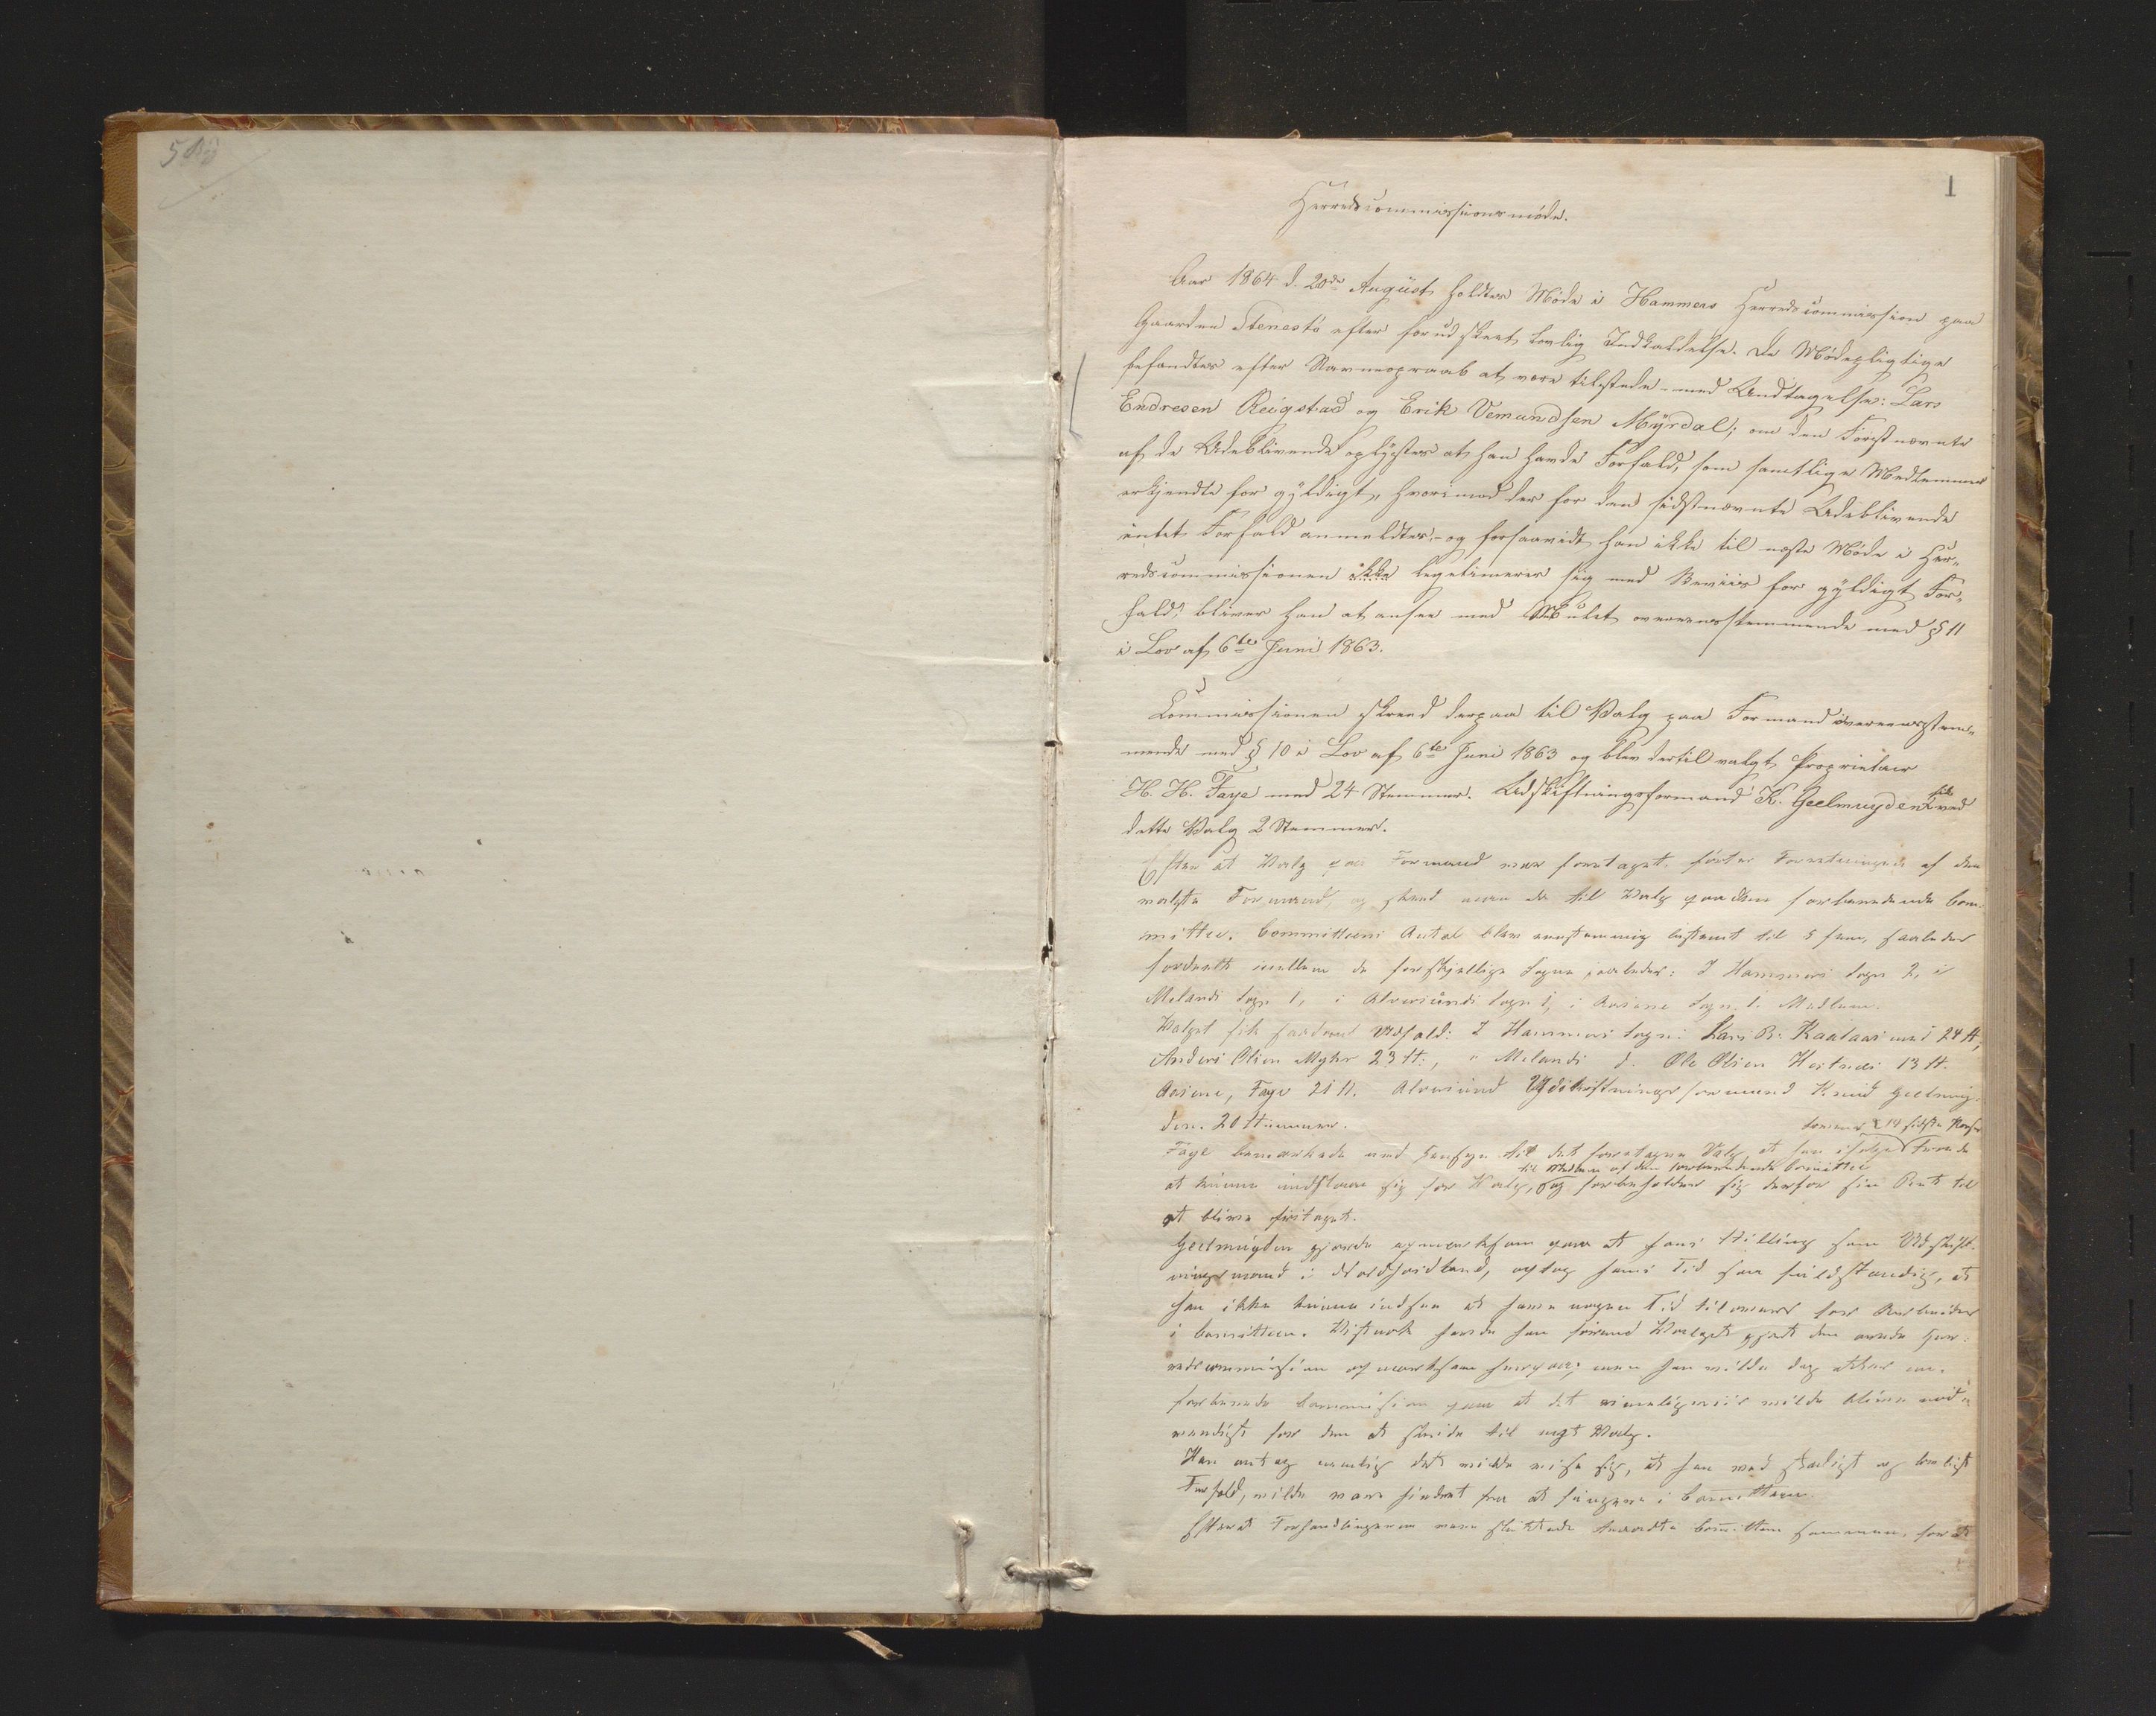 1
Herredscommissionsmöde.
Aar 1864 d. 20de August holdtes Möde i Hammers Herredscommission paa
Gaarden Stenestö efter forud skeet lovlig Indkaldelse. De Mödepligtige
befandtes efter Navneopraab at være tilstede - med Undtagelse: Lars
Endresen Reigstad og Erik Vemundsen Myrdal; om den Förstnævnte
af de Udeblivende oplystes at han havde Forfald, som samtlige Medlemmer
erkjendte for gyldigt, hvorimod der for den sidstnævnte Udeblivende
intet Forfald anmeldtes, - og forsaavidt han ikke til næste Möde i Her-
redscommissionen ikke legetimerer sig med Beviis for gyldigt For-
fald, bliver han at ansee med Mulct overeensstemmende med § 11
i Lov af 6te Juni 1863.
Commissionen skred derpaa til Valg paa Formand overeensstem-
mende med § 10 i Lov af 6te Juni 1863 og blev dertil valgt Proprietair
H. H. Faye med 24 Stemmer. Udskiftningsformand K. Geelmuyden fik ved
dette Valg 2 Stemmer.
Efter at Valg paa Formand var foretaget förtes Forretningen af den
valgte Formand, og skred man da til Valg paa den forberedende Com-
mittee. Committeens Antal blev eenstemmig bestemt til 5 fem, saaledes
fordeelt imellem de forskjellige Sogne saaledes: I Hammers Sogn 2, i
Melands Sogn 1, i Alversunds Sogn 1, i Aasene Sogn 1. Medlem.
Valget fik saadant Udfald: I Hammers Sogn: Lars B. Kaalaas med 24 St,
Anders Olsen Myhr 23 St:, i Melands d. Ole Olsen Hestnes 13 St.
Aasene, Faye 21 St. Alversund Udskiftningsformand Knud Geelmuy-
den. 20 Stemmer.
Faye bemærkede med Hensyn til det foretagne Valg, at han ifölge troende
at kunne indstaae sig for Valg, til Medlem af den forberedende Comittee og forbeholder sig derfor sin Ret til
at blive fritaget.
Geelmuyden gjorde opmærksom paa at hans Stilling som Udskift-
ningsmand i Nordhordland, optog hans Tid saa fuldstændig, at
han ikke kunne indsee at have nogen Tid tilovers for Arbeidet
i Comitteen. Vistnok havde han förend Valget gjort den ærede Her-
redscommission opmærksom herpaa; men han vilde dog atter
 Commission paa at det rimeligviis vilde blive nöd-
vendigt for den at skride til nyt Valg.
Han antog nemlig det vilde vise sig, at han ved  og lovligt
Forfald, vilde være hindret fra at fungere i Comitteen.
Efterat Forhandlingerne vare sluttede traadte Comitteen sammen, for at